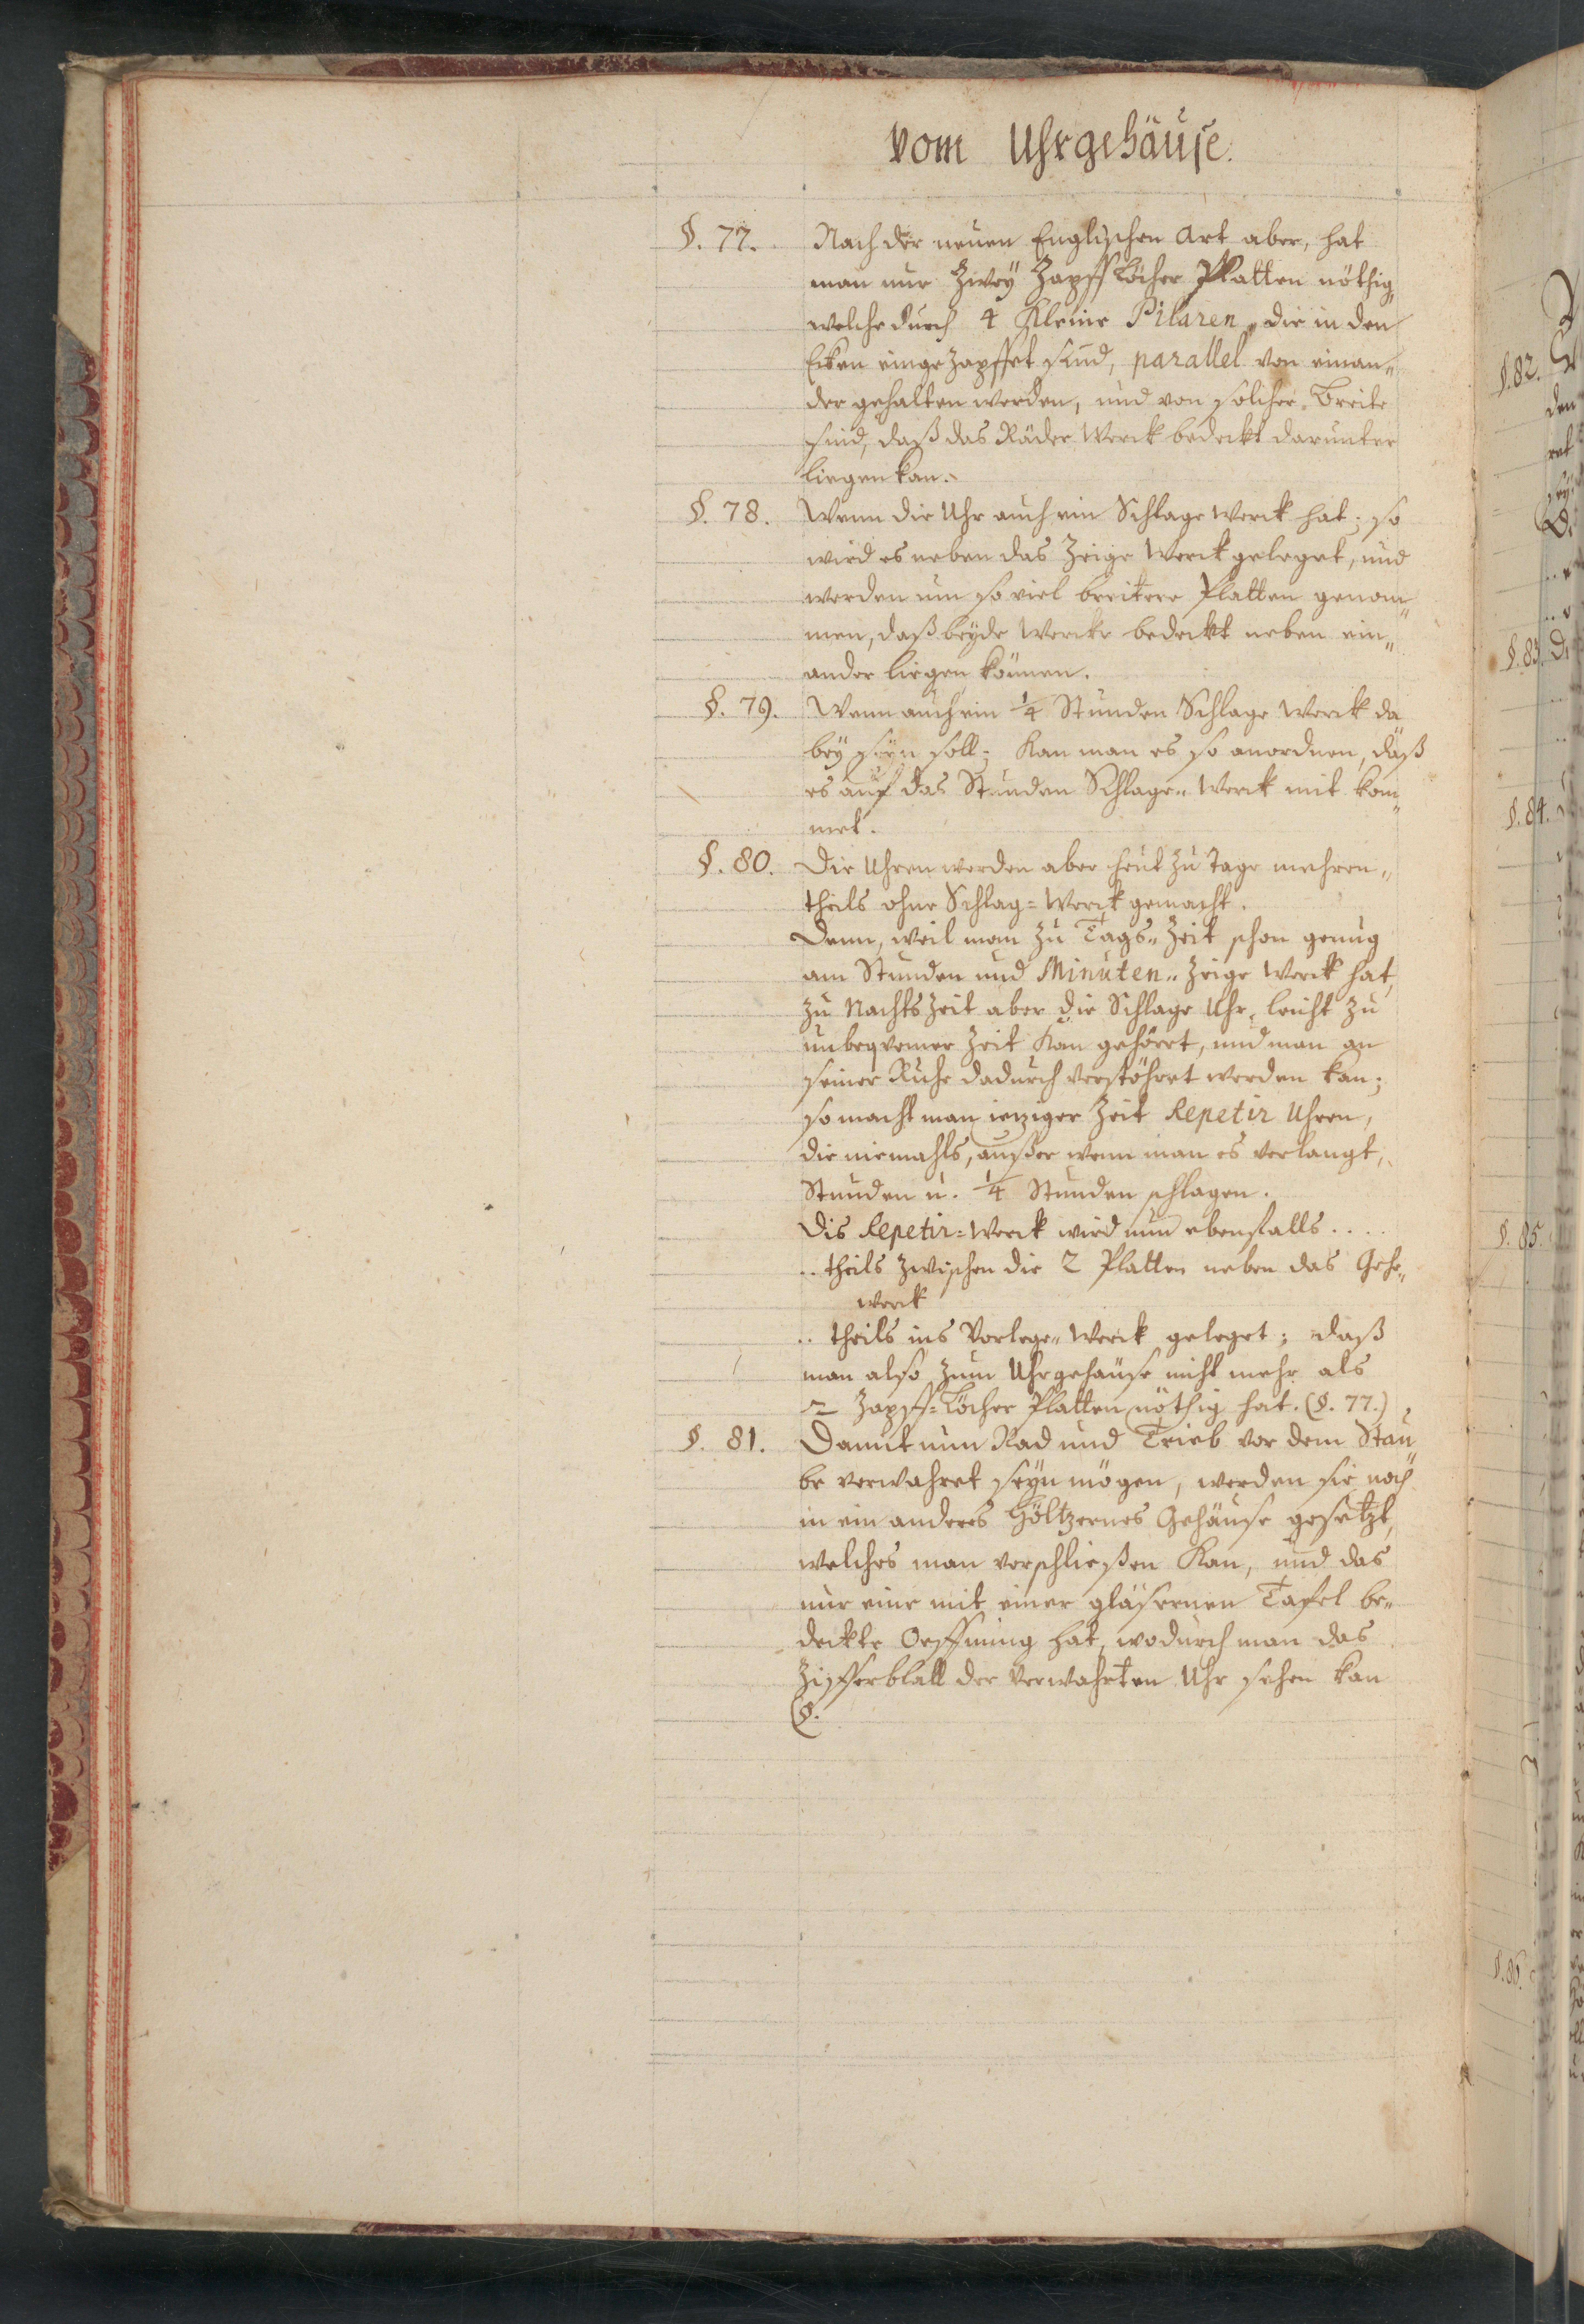 Vom Uhrgehäuse.
§. 77. Nach der neuen Englischen Art aber, hat
man nur Zwey Zapff Löcher Platten nöthig,
welche durch 4 Kleine Pilaren, die in den
Ecken eingezapffet sind, parallel von einan„
der gehalten werden, und von solcher Breite
sind, daß das Räder Werck bedeckt darunter
liegen kan.
§. 78. Wenn die Uhr auch ein Schlage Werck hat; so
wird es neben das Zeige Werck geleget, und
werden um so viel breitere Platten genom„
men, daß beyde Wercke bedeckt neben ein„
ander liegen können.
§. 79. Wenn auch ein 1/4 Stunden Schlage Werck da
bey seyn soll; Kan man es so anordnen, daß
es auf das Stunden Schlage„ Werck mit kom„
met.
§. 80. Die Uhren werden aber heut zu Tage mehren„
theils ohne Schlag=Werck gemacht.
Denn, weil man zu Tags„ Zeit schon genug
am Stunden und Minuten„ Zeige Werck hat,
zu Nachts Zeit aber die Schlage Uhr, leicht zu
unbeqvemer Zeit Kan gehöret, und man an
seiner Ruhe dadurch verstöhret werden kan;
so macht man ietziger Zeit Repetir Uhren,
die niemahls, außer wenn man es verlangt,
Stunden u. 1/4 Stunden schlagen.
Dis Repetir=Werck wird nun ebenfalls . . . .
.. theils zwischen die 2 Platten neben das Gehe„
werck
.. theils ins Vorlege„ Werck geleget; daß
man also zum Uhrgehäuse nicht mehr als
2 Zapff=Löcher Platten nöthig hat. (§. 77.)
§. 81. Damit nun Rad und Trieb vor dem Stau„
be verwahret seyn mögen, werden sie noch
in ein anderes Höltzernes Gehäuse gesetzt,
welches man verschließen Kan, und das
nur eine mit einer gläsernen Tafel be„
deckte Oeffnung hat, wodurch man das
Zifferblatt der verwahrten Uhr sehen kan
(§.
§. 82.
den
§. 83.
§. 84.
§. 85.
§. 86.